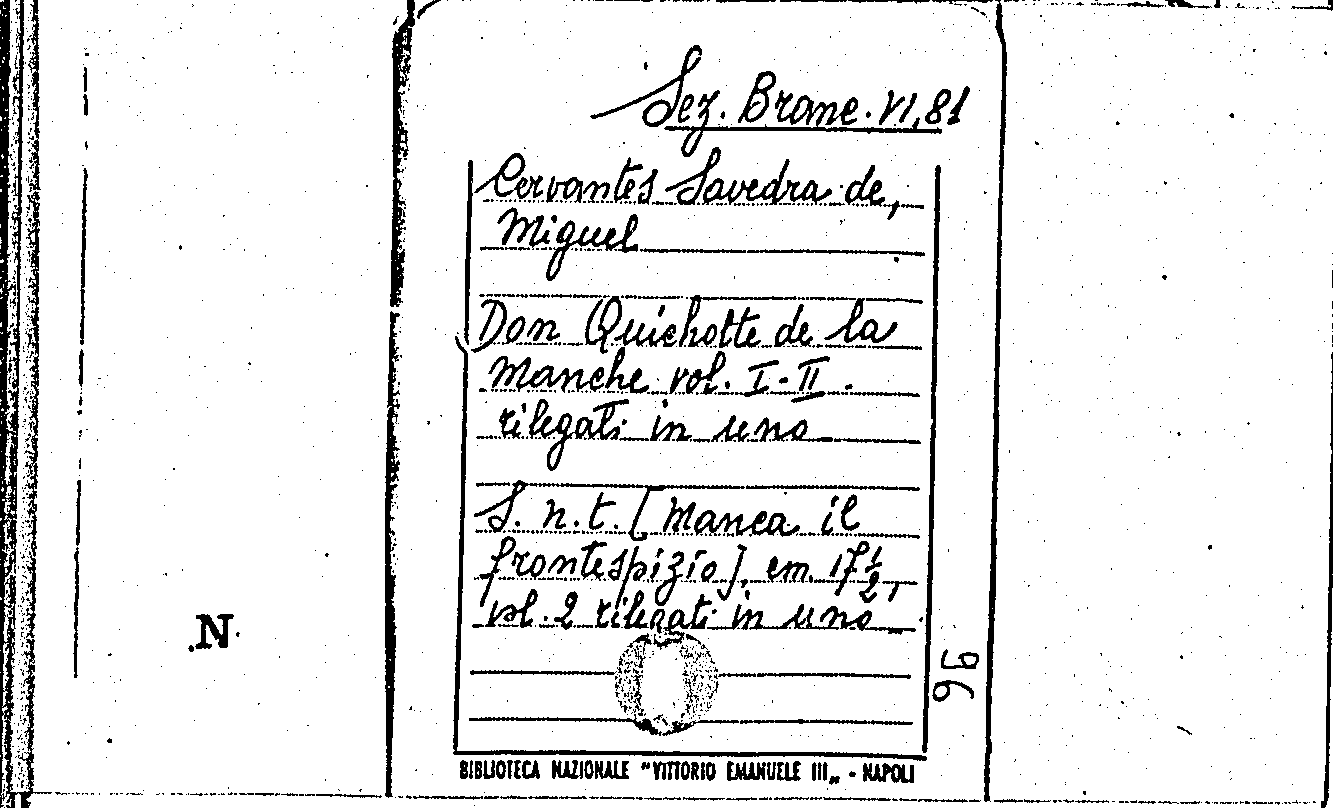 Sez. Branc. VI, 81
Cervantes Savedra de,
Miguel
Don Quichotte de la
Manche vol. I-II.
rilegati in uno
S. n. t. [Manca il
frontespizio]. cm. 17 1/2,
vol. 2 rilegati in uno
96
.N.
BIBLIOTECA NAZIONALE "VITTORIO EMANUELE III„ - NAPOLI